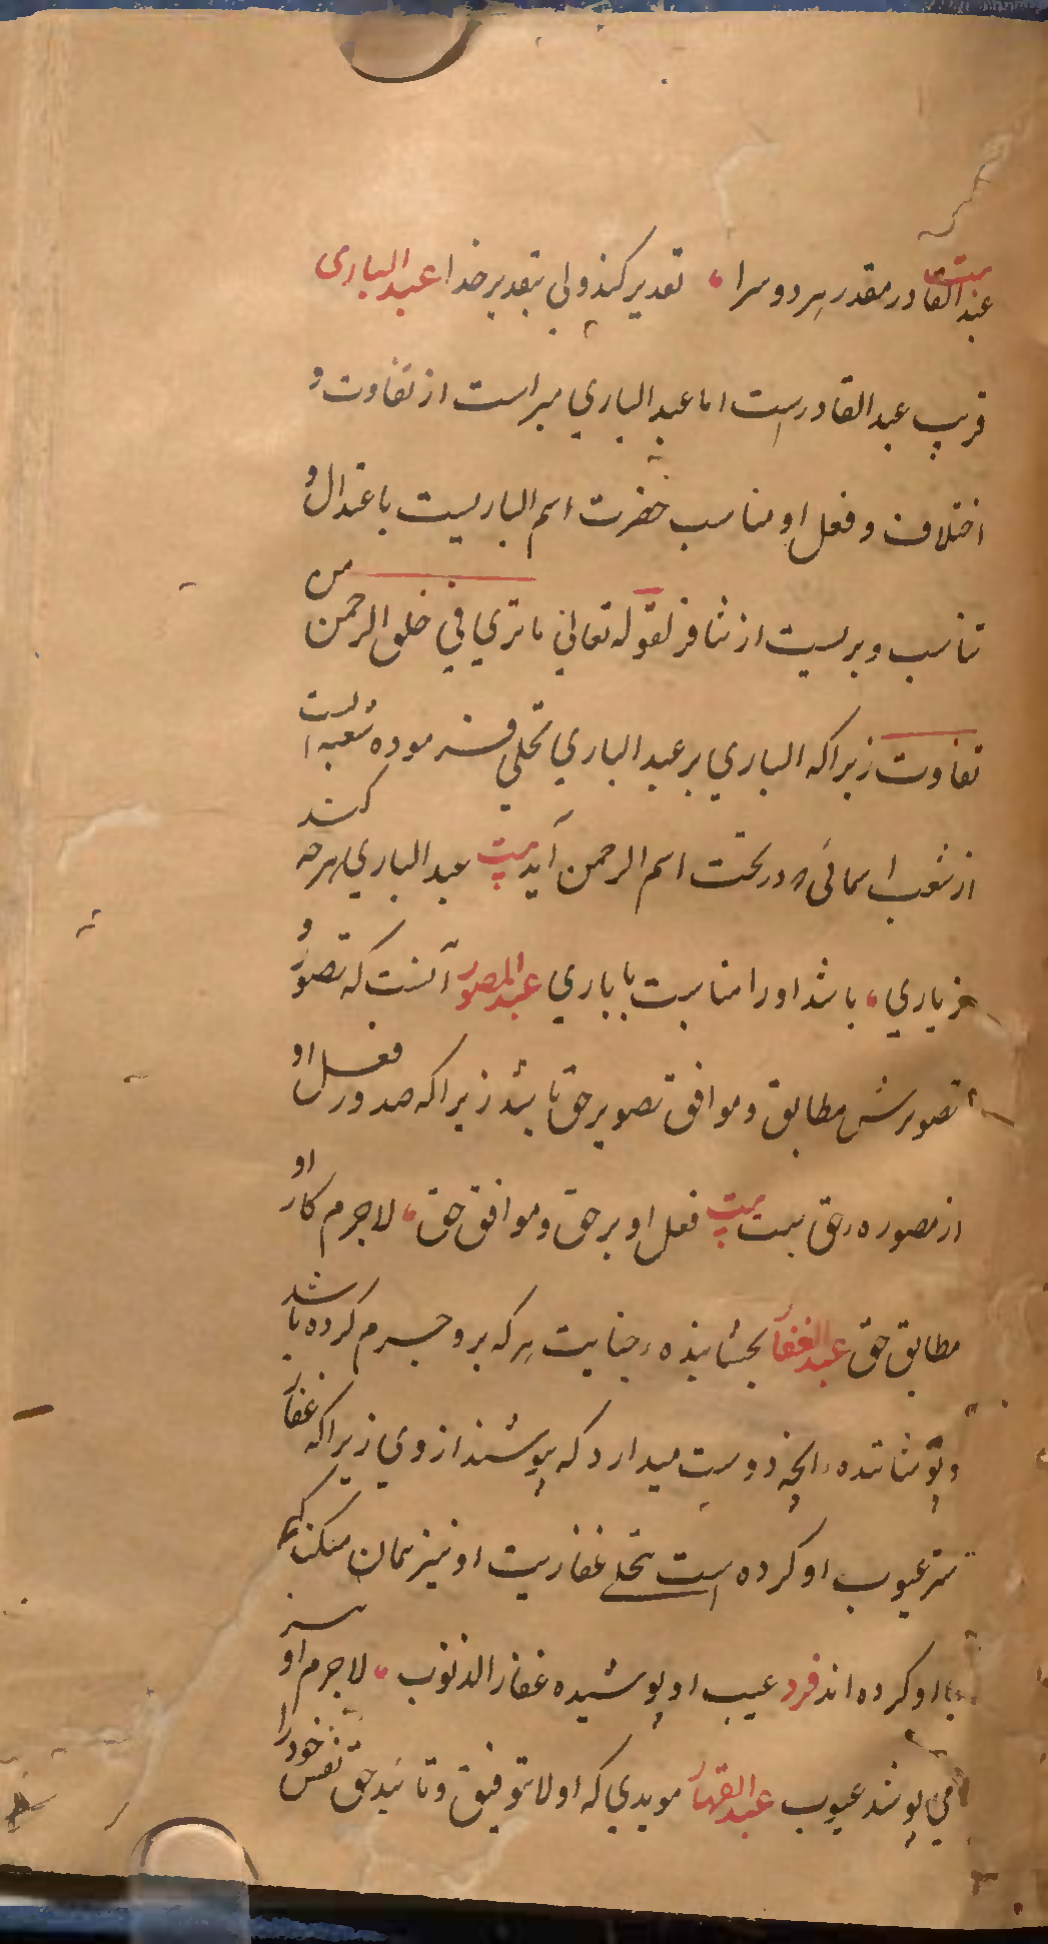 بیت
عبد القادر مقدر هر دو سرا ، تقدیر کند ولی بتقدیر خدا عبد الباری
قریب عبد القادر است اما عبد الباری مبراست از تفاوت و
اختلاف و فعل او مناسب حضرت اسم الباریست باعتدال و
تناسب و بریست از تنافر لقوله تعالی ما تری فی خلق الرحمن من
تفاوت زیرا که الباری بر عبد الباری تجلی فرموده شعبه است
از شعب اسمائی در تحت اسم الرحمن آید بیت عبد الباری هرچه کند
باری ، باشد او را مناسبت با باری عبد المصور آنست که تصور و
تصویرش مطابق و موافق تصویر حق باشد زیرا که صدور فعل او
از مصوره حق بیت فعل او بر حق و موافق حق ، لاجرم کار او
مطابق حق عبد الغفار بخشاینده جنایت هر که برو جرم کرده باشد
و پوشاننده انچه دوست میدارد که پوشند از وی زیرا که غفار
ستر عیوب او کرده است تجلی غفاریت او نیز همان میکند که
با او کرده اند فرد عیب او پوشیده غفار الذنوب ، لاجرم او نیز
می پوشد عیوب عبد القهار مویدی که اولا بتوفیق و تائید حق نفس خود را